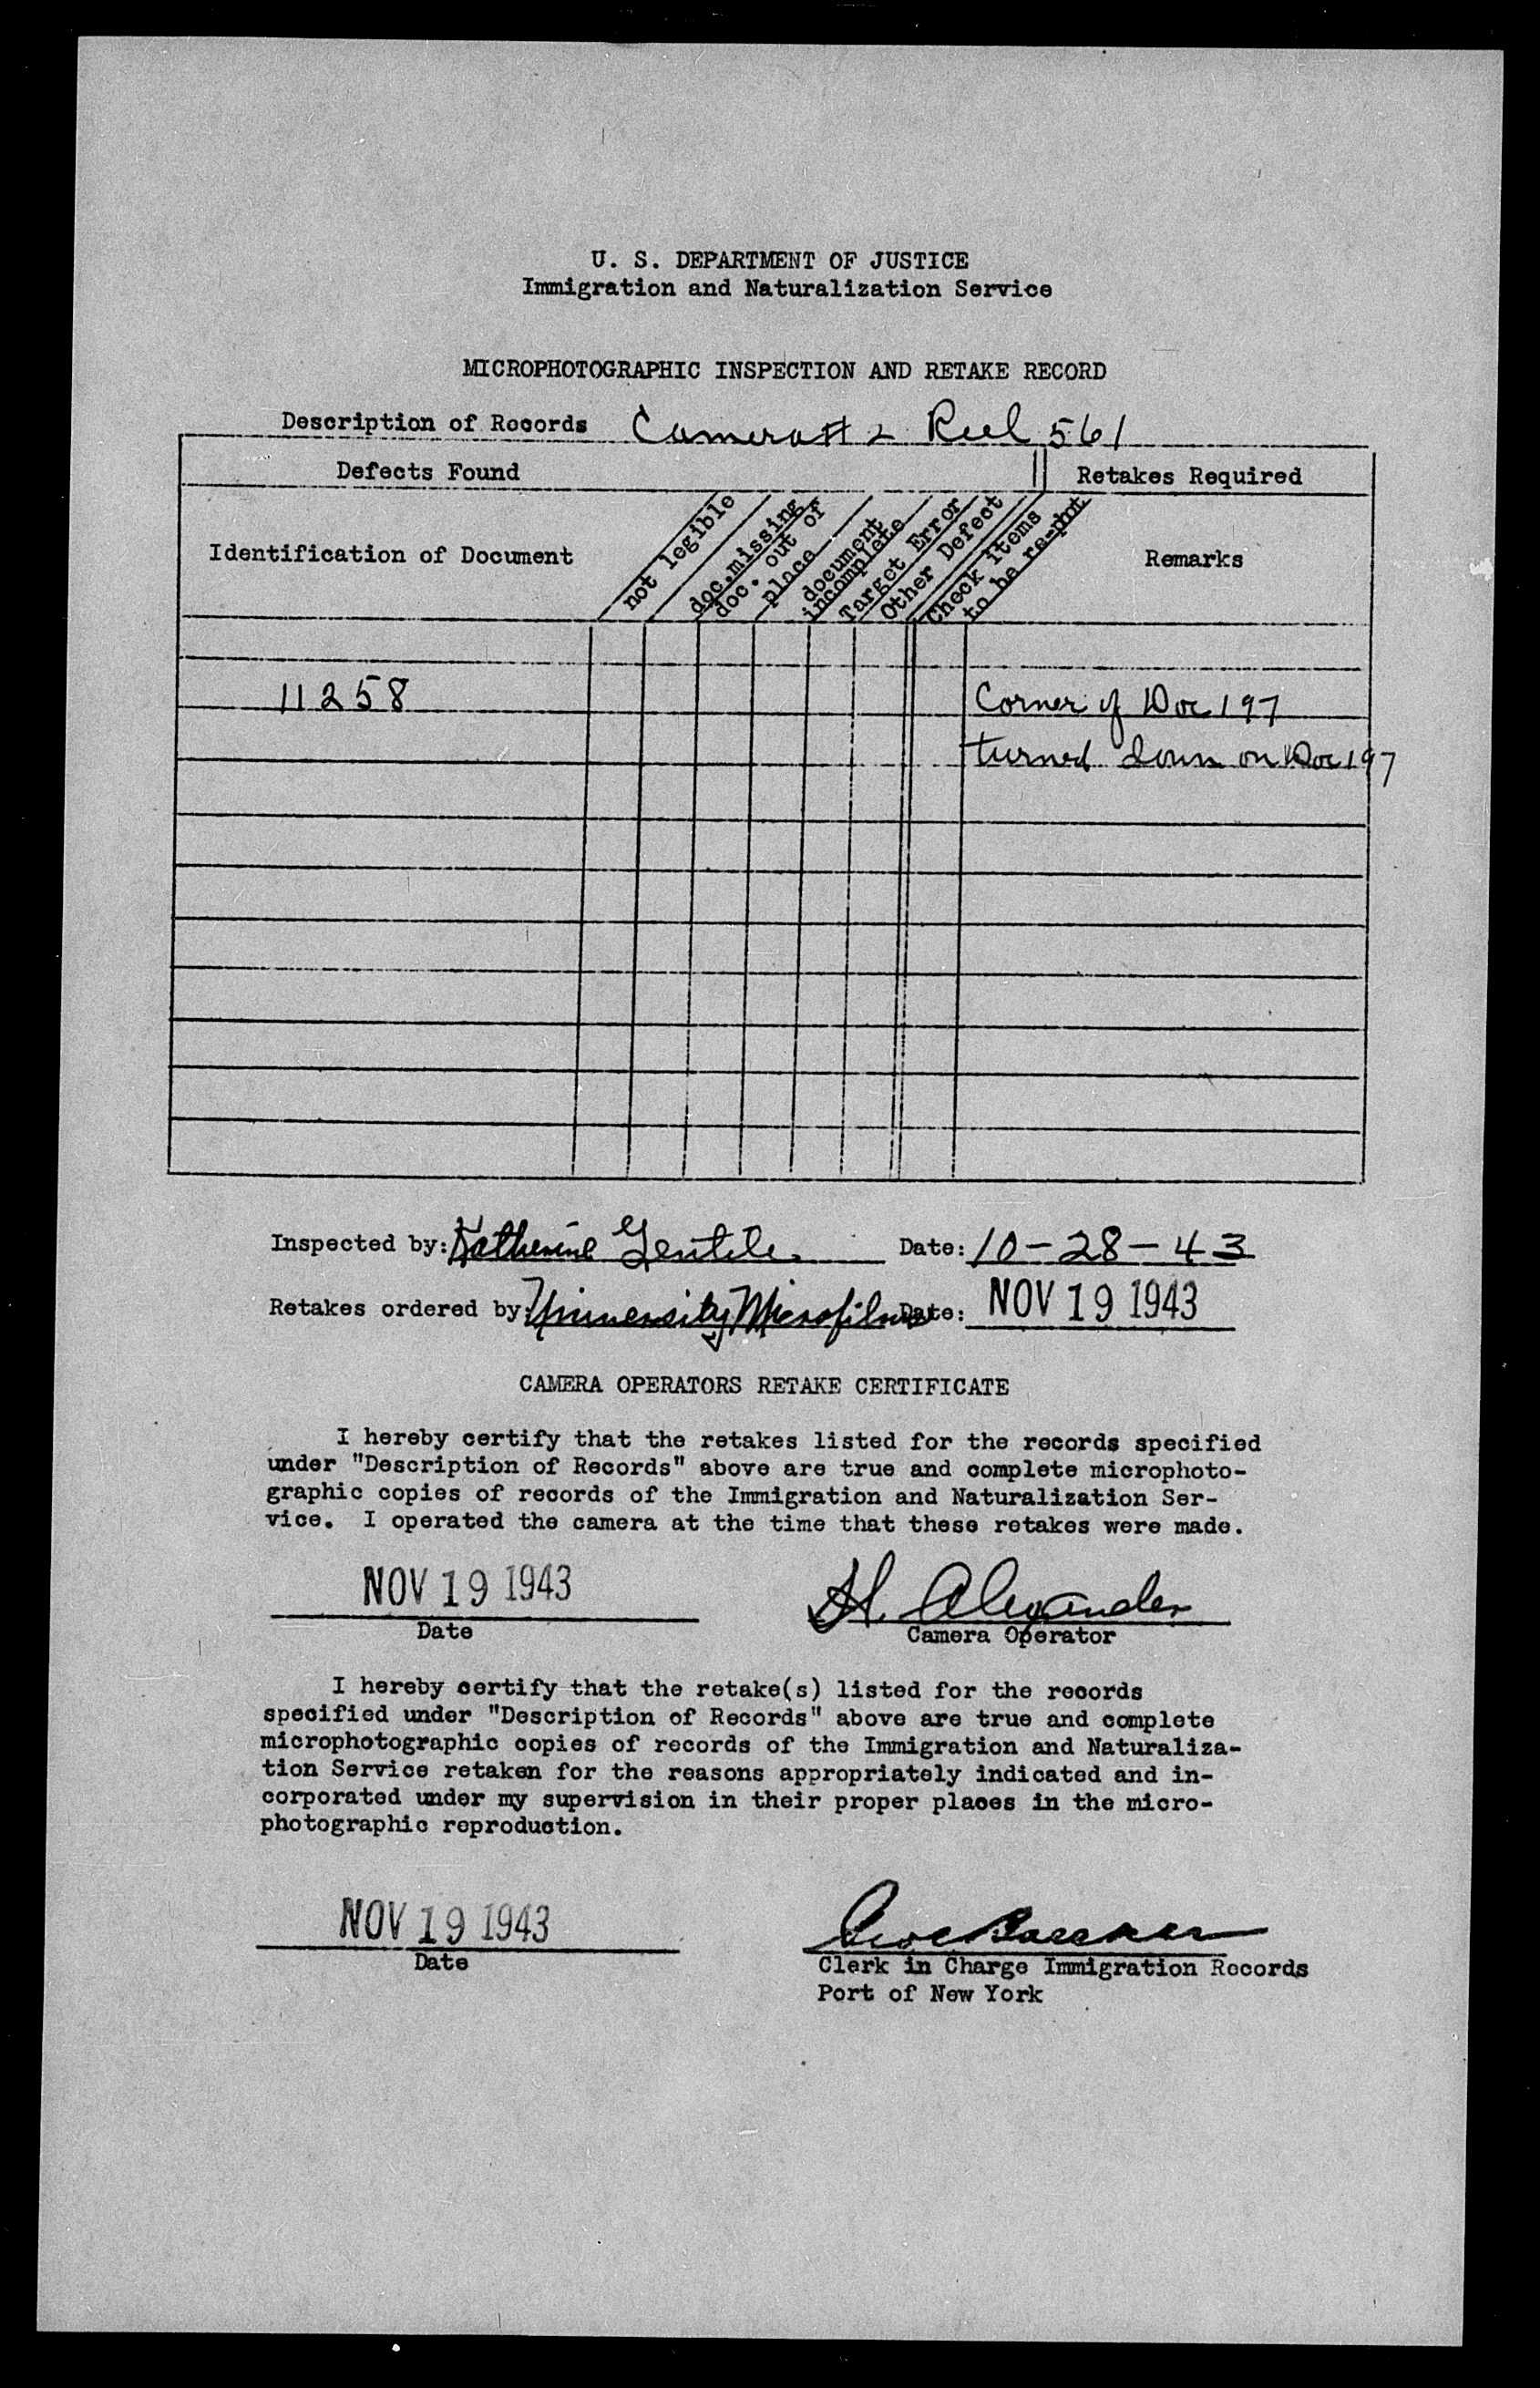 U. S. DEPARTMENT OF JUSTICE
Immigration and Naturalization Service
MICROPHOTOGRAPHIC INSPECTION AND RETAKE RECORD
Description of Records Camera # 2 Reel 561
Defects Found Retakes Required
Identification of Document
not legible
doc. missing
doc. out of
place
document
incomplete
Target Error
Other Defect
Check items
to be re-phot
Remarks
11258 Corner of Doc 197
turned down on Doc 197
Inspected by: Katherine Gentile Date: 10-28-43
Retakes ordered by: University Microfilms Date: NOV 19 1943
CAMERA OPERATORS RETAKE CERTIFICATE
I hereby certify that the retakes listed for the records specified
under "Description of Records" above are true and complete microphoto-
graphic copies of records of the Immigration and Naturalization Ser-
vice. I operated the camera at the time that these retakes were made.
NOV 19 1943 H. Alexander
Date Camera Operator
I hereby certify that the retake(s) listed for the records
specified under "Description of Records" above are true and complete
microphotographic copies of records of the Immigration and Naturaliza-
tion Service retaken for the reasons appropriately indicated and in-
corporated under my supervision in their proper places in the micro-
photographic reproduction.
NOV 19 1943
Date Clerk in Charge Immigration Records
Port of New York